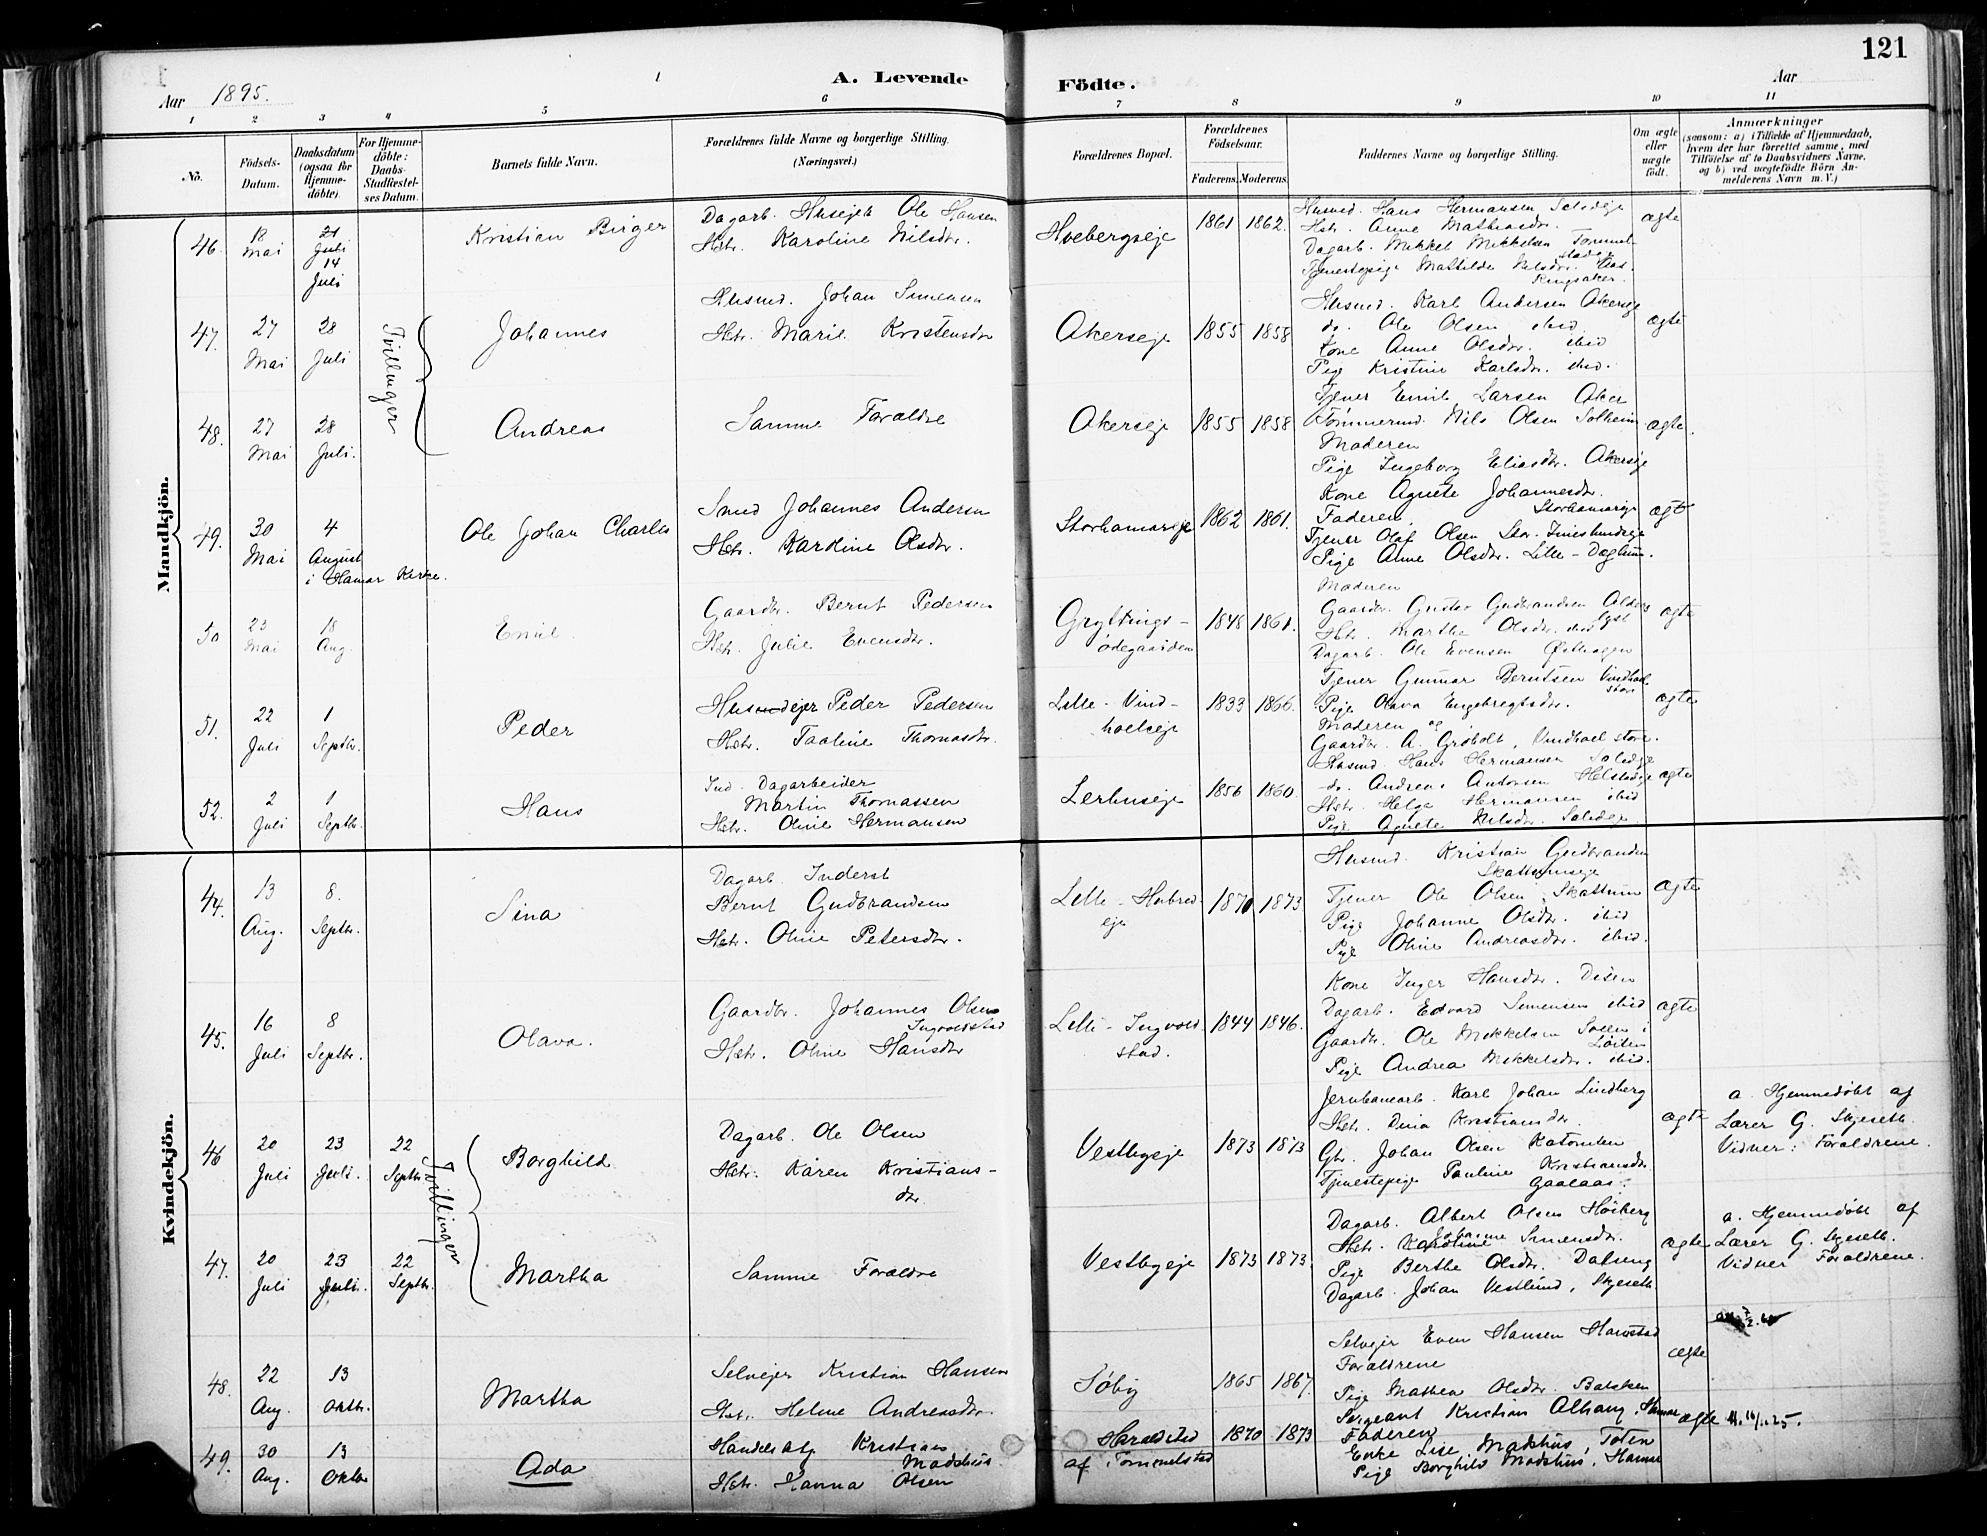 121
Aar 1895.
A. Levende Födte.
Aar
1 2 3 4 5 6 7 8 9 10 11
No.
Födsels-Datum.
Daabsdatum (ogsaa for Hjemme-döbte).
For Hjemme-döbte: Daabs-Stadfæstel-ses Datum.
Barnets fulde Navn.
Forældrenes fulde Navne og borgerlige Stilling. (Næringsvei.)
Forældrenes Bopæl.
Forældrenes Födselsaar.
Faderens. Moderens.
Faddernes Navne og borgerlige Stilling.
Om ægte eller uægte födt.
Anmærkninger
(saasom: a) i Tilfælde af Hjemmedaab, hvem der har forrettet samme, med Tilföielse af to Daabsvidners Navne, og b) ved uægtefödte Börn An-melderens Navn m. V.)
Mandkjön.
46. 18 Mai 21 Juli 14 Juli
Kristian Birger
Dagarb. Husejer Ole Hansen
Hstr. Karoline Nilsdr.
Hvebergseje 1861 1862.
Husmd. Hans Hermansen Saledeje
Hstr. Anne Mathiasdr.
Dagarb. Mikkel Mikkelsen Tommelstadeje
Tjenestepige Mathilde Nilsdr. Ringsaker.
ægte
47. 27 Mai 28 Juli
Tvillinger
Johannes
Husmd. Johan Simensen
Hstr. Marie Kristensdr
Akerseje 1855 1858
Husmd. Karl Andersen Akerseje
do. Ole Olsen ibid
Kone Anne Olsdr. ibid
Pige Kristine Karlsdr. ibid.
ægte
48. 27 Mai 28 Juli.
Andreas
Samme Forældre
Akerseje 1855 1858
Tjener Emil Larsen Aker
Tømmermd. Nils Olsen Solheim
Moderen
Pige Ingeborg Eliasdr. Akerseje
ægte.
49. 30 Mai 4 August i Hamar Kirke.
Ole Johan Charles
Smed Johannes Andersen
Hstr. Karoline Olsdr.
Storhamareje 1862 1861.
Kone Agnete Johannesdr. Storhamareje
Faderen,
Tjener Olaf Olsen Stor-Imeslundeje
Pige Anne Olsdr. Lille-Døglum.
ægte
50 23 Mai 18 Aug.
Emil.
Gaardbr. Bernt Pedersen
Hstr. Julie Evensdr.
Gryttings-ødegaarden 1848 1861.
Moderen
Gaardbr. Gustav Gudbrandsen Alderslyst
Hstr. Marthe Olsdr. ibid
Dagarb. Ole Evensen Østhagen
ægte
51. 22 Juli 1 Septbr.
Peder
Husmdejer Peder Pedersen
Hstr. Pauline Thomasdr.
Lille-Vindhoelseje 1833 1866.
Tjener Gunnar Berntsen Vindhoel store
Pige Olava Engebregtsdr.
Moderen og
Gaardbr. A. Grøholt, Vindhoel store.
ægte
52. 2 Juli 1 Septbr.
Hans
Ind. Dagarbeider
Martin Thomassen
Hstr. Oline Hermansen
Lerhuseje 1856 1860.
Husmd Hans Hermansen Saledeje
do. Andreas Antonsen Helstadeje
Hstr. Helga Hermansen ibid
Pige Agnete Nilsdr. Saledeje
ægte
Kvindekjön.
44. 13 Aug. 8. Septbr.
Sina
Dagarb. Inderst
Bernt Gudbrandsen
Hstr. Oline Petersdr.
Lille-Hubred-eje 1870 1873
Husmd. Kristian Gudbrandsen Skattumseje
Tjener Ole Olsen, Skattum
Pige Johanne Olsdr. ibid
Pige Oline Andreasdr. ibid.
ægte
45. 16 Juli 8 Septbr.
Olava.
Gaardbr. Johannes Olsen Ingvoldstad
Hstr. Oline Hansdr
Lille-Ingvoldstad. 1844 1846.
Kone Inger Hansdr. Disen
Dagarb. Edvard Simensen ibid
Gaardbr. Ole Mikkelsen Sollien i Løiten
Pige Andrea Mikkelsdr. ibid.
ægte
46 20 Juli 23 Juli. 22 Septbr.
Tvillinger
Borghild
Dagarb. Ole Olsen
Hstr. Karen Kristians-dr.
Vestbyeje 1873 1873
Jernbanearb. Karl Johan Lindberg
Hstr. Dina Kristiansdr
Gbr. Johan Olsen Katomten
Tjenestepige Pauline Kristiansdr. Gaalaas.
ægte
a. Hjemmedøbt af
Lærer G. Skjeseth.
Vidner: Forældrene.
47. 20 Juli 23 Juli. 22 Septbr.
Martha
Samme Forældre
Vestbyeje 1873 1873
Dagarb. Albert Olsen Høiberg
Hstr. Karoline Johanne Simensdr.
Pige Berthe Olsdr. Dalseng
Dagarb. Johan Vestlund, Skjeseth.
ægte
a. Hjemmedøbt af
Lærer G. Skjeseth.
Vidner Forældrene.
48. 22 Aug. 13 Oktbr.
Martha
Selvejer Kristian Hansen
Hstr. Helene Andreasdr.
Søby 1865 1867.
Selvejer Even Hansen Harestad
Forældrene
Pige Mathea Olsdr. Balken
ægte
49. 30 Aug. 13 Oktbr
Ada
Handelsbtj. Kristian Madshus.
Hstr. Hanna Olsen
Haraldstad af Tommelstad 1870 1873
Sergeant Kristian Alhaug, Hamar
Faderen
Enke Lise Madshus, Toten
Pige Borghild Madshus, Hamar
ægte 16/11.25.